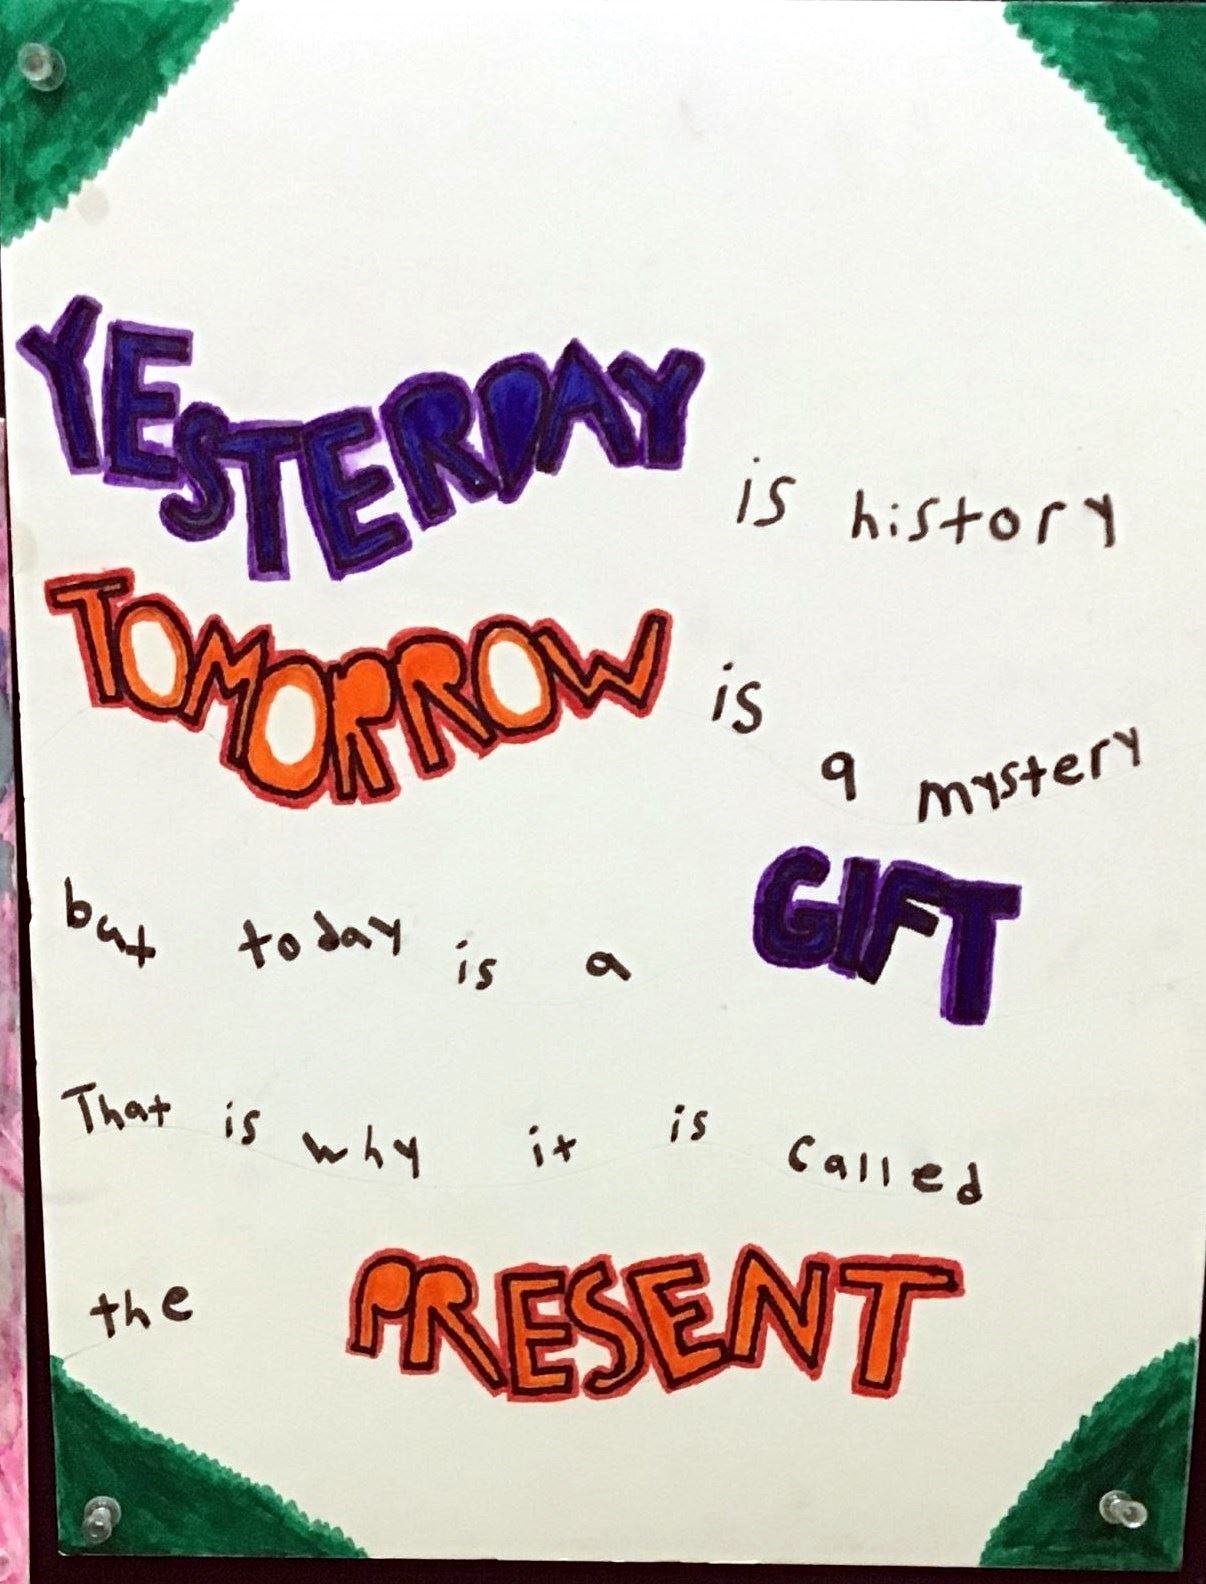 YESTERDAY is history
TOMORROW is a mystery
but today is a GIFT
That is why it is called
the PRESENT